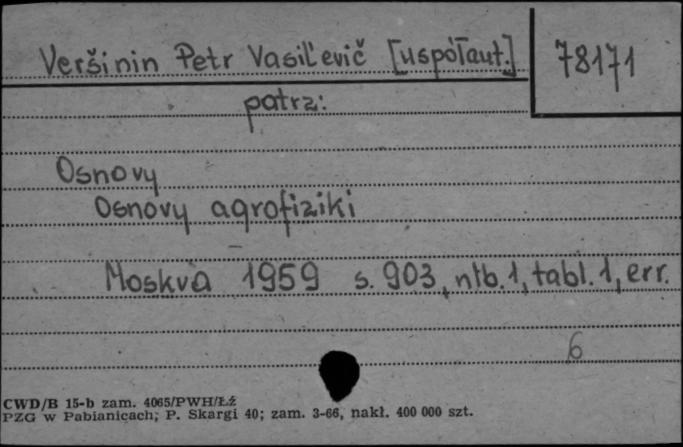 Veršinin Petr Vasil'evič [uspółaut.]
78171
patrz:
Osnovy
Osnovy agrofiziki
Moskva 1959 s. 903, nlb. 1, tabl. 1, err.
6
CWD/B 15-b zam. 4065/PWH/ŁŻ
PZG w Pabianicach; P. Skargi 40; zam. 3-66, nakł. 400 000 szt.